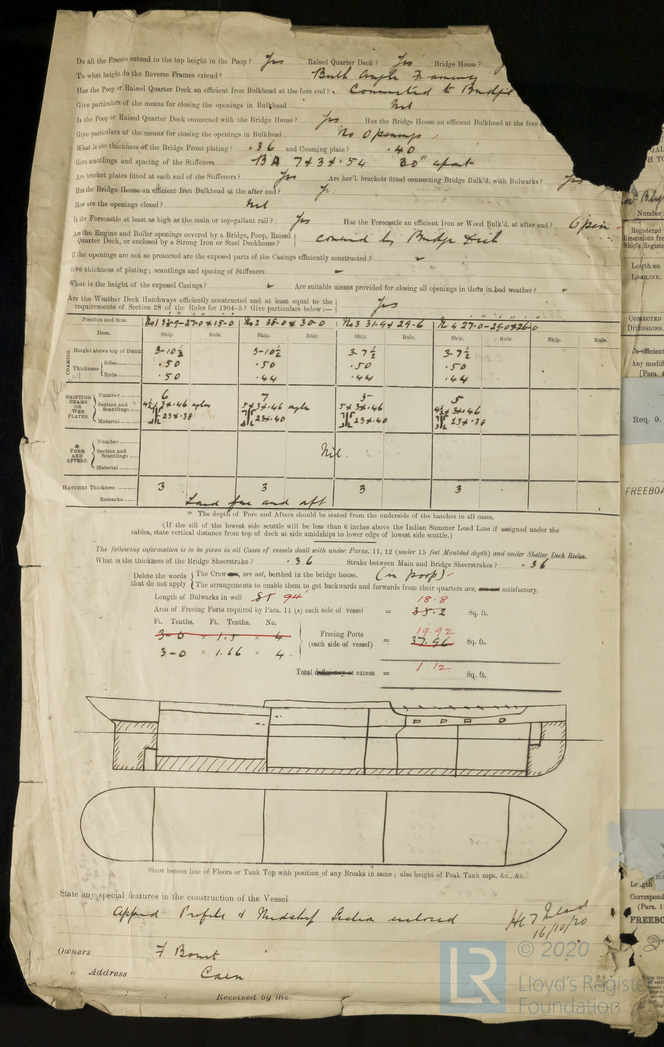 Do all the Frames extend to the top height in the Poop? Yes Raised Quarter Deck? Yes Bridge House?
To what height do the Reverse Frames extend? Bulb Angle Framing
Has the Poop or Raised Quarter Deck an efficient Iron Bulkhead at the fore end? Connected to Bridge
Give particulars of the means for closing the openings in Bulkhead Nil
Is the Poop or Raised Quarter Deck connected with the Bridge House? Yes Has the Bridge House an efficient Bulkhead at the fore
Give particulars of the means for closing the openings in Bulkhead No Openings
What is the thickness of the Bridge Front plating? .36 and Coaming plate? .40
Give scantlings and spacing of the Stiffeners BA 7 x 3 x .54 30" apart
Are bracket plates fitted at each end of the Stiffeners? Yes Are hor'l. brackets fitted connecting Bridge Bulk'd. with Bulwarks? Yes
Has the Bridge House an efficient Iron Bulkhead at the after end?
How are the openings closed? Nil
Is the Forecastle at least as high as the main or top-gallant rail? Yes Has the Forecastle an efficient Iron or Wood Bulk'd. at after end? Open
Are the Engine and Boiler openings covered by a Bridge, Poop, Raised Quarter Deck, or enclosed by a Strong Iron or Steel Deckhouse? covered by Bridge Deck
If the openings are not so protected are the exposed parts of the Casings efficiently constructed? "
Give thickness of plating; scantlings and spacing of Stiffeners "
What is the height of the exposed Casings? " Are suitable means provided for closing all openings in them in bad weather? "
Are the Weather Deck Hatchways efficiently constructed and at least equal to the requirements of Section 28 of the Rules for 1904-5? Give particulars below:— Yes
Position and Size. No 1 No 2 38-0 x 30-0 No 3 31-9 x 29-6 No 4 27-0
Item. Ship. Rule. Ship. Rule. Ship. Rule. Ship. Rule. Ship. Rule.
COAMING
Height above top of DECK 3-10½ 3-10½ 3-7½ 3-7½
Thickness Sides .50 .50 .50 .50
Ends .50 .44 .44 .44
SHIFTING BEAMS OR WEB PLATES.
Number 6 7 5 5
Section and Scantlings
Material
FORE AND AFTERS.
Number
Section and Scantlings Nil
Material
HATCHES Thickness 3 3 3 3
Remarks Laid fore and aft
* The depth of Fore and Afters should be stated from the underside of the hatches in all cases.
(If the sill of the lowest side scuttle will be less than 6 inches above the Indian Summer Load Line if assigned under the
tables, state vertical distance from top of deck at side amidships to lower edge of lowest side scuttle.)
The following information is to be given in all Cases of vessels dealt with under Paras. 11, 12 (under 15 feet Moulded depth) and under Shelter Deck Rules.
What is the thickness of the Bridge Sheerstrake? .36 Strake between Main and Bridge Sheerstrakes? .36
Delete the words that do not apply The Crew are, are not, berthed in the bridge house. (in poop)
The arrangements to enable them to get backwards and forwards from their quarters are, are not satisfactory.
Length of Bulwarks in well 94'
18.8
Area of Freeing Ports required by Para. 11 (e) each side of vessel = 35.2 Sq. ft.
Ft. Tenths. Ft. Tenths. No.
3-0 x 1.5 x 4
3-0 x 1.66 x 4
Freeing Ports (each side of vessel) = 19.92 37.96 Sq. ft.
Total deficiency or excess = 1.12 Sq. ft.
Show hereon line of Floors or Tank Top with position of any Breaks in same; also height of Peak Tank tops, &c., &c.
State any special features in the construction of the Vessel
Approved Profile & Midship Section enclosed
16/10/20
Owners F Bouet
" Address Caen
Received by me
LR © 2020
Lloyd's Register
Foundation
Number
Registered
dimensions fro
Ship's Registe
Length on
LOADLINE.
CORRECTED
DIMENSIONS.
Co-efficient
Any modifi
[Para. 4
Req. 9.
FREEBOA
Length
Correspond
(Para. 1
FREEBO